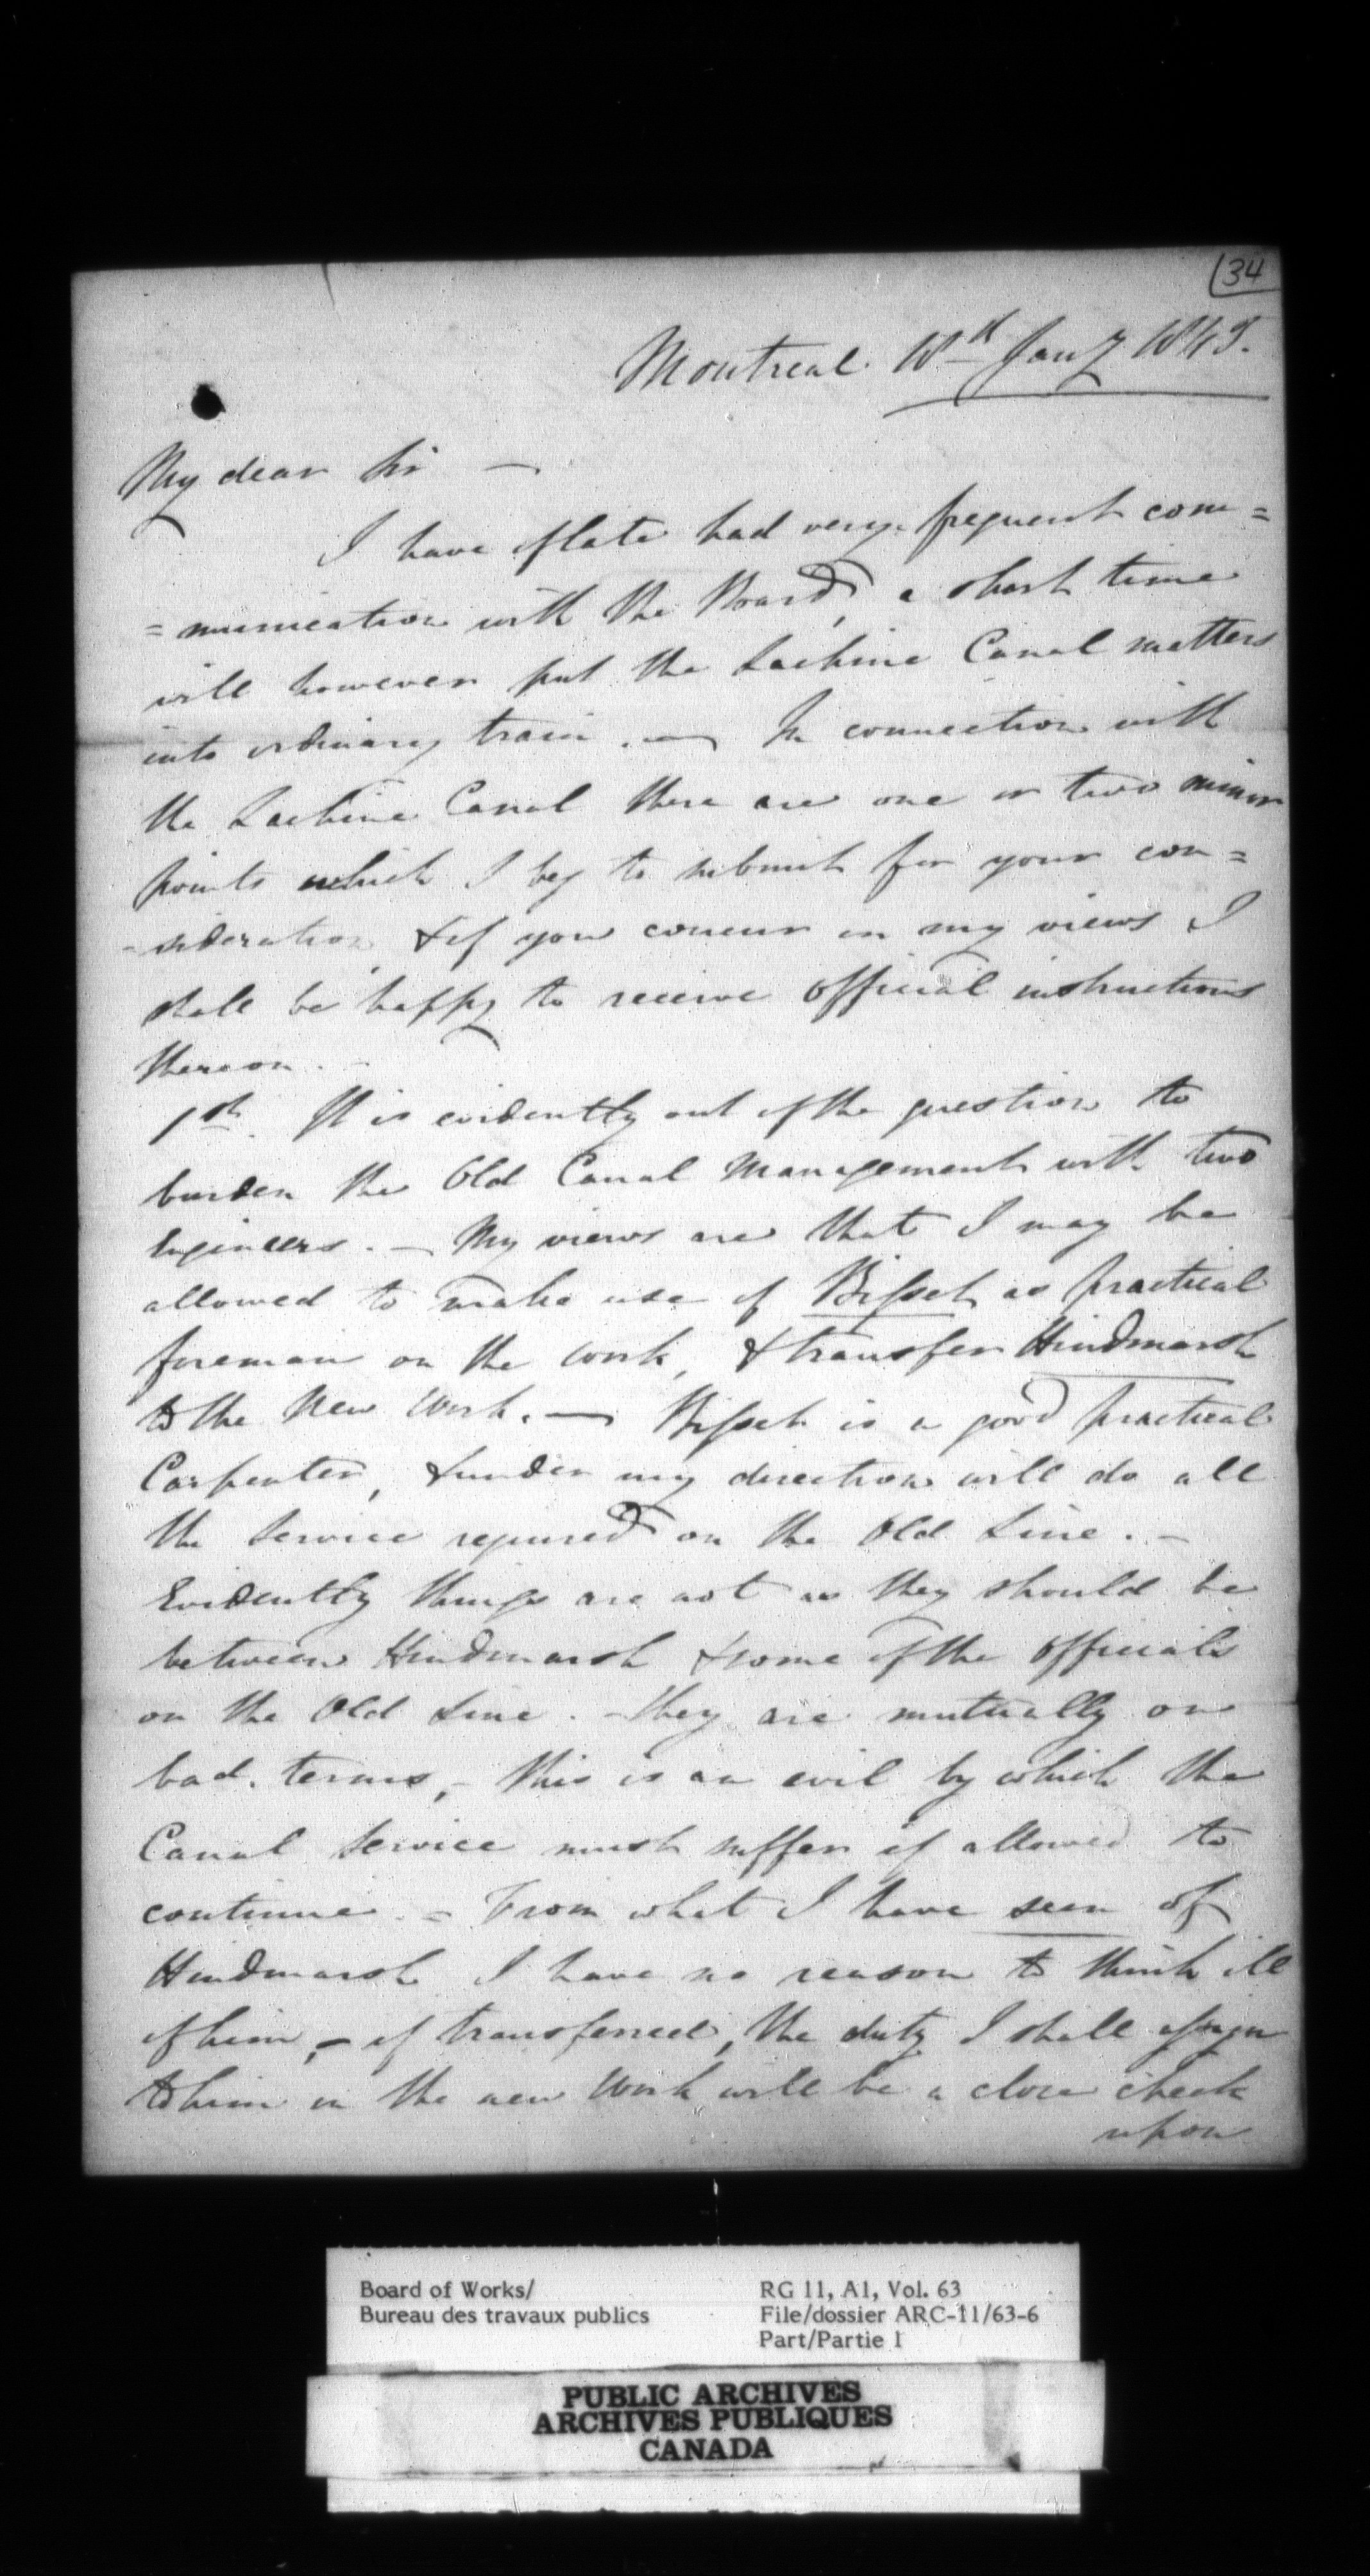 34
Montreal 18th Jany 1845.
My dear Sir —
I have of late had very frequent com=
=munication with the Board, a short time
will however put the Lachine Canal matters
into ordinary train. — In connection with
the Lachine Canal there are one or two minor
points which I beg to submit for your con=
=sideration, & if you concur in my views I
shall be happy to receive official instructions
thereon. —
1st. It is evidently out of the question to
burden the Old Canal Management with two
Engineers. — My views are that I may be
allowed to make use of Bisset as practical
foreman on the work, & transfer Hindmarsh
to the New Work. — Bisset is a good practical
Carpenter, & under my direction will do all
the Service required on the Old Line. —
Evidently things are not as they should be
between Hindmarsh & some of the officials
on the Old Line. – they are mutually on
bad terms, – this is an evil by which the
Canal Service must suffer if allowed to
continue. – From what I have seen of
Hindmarsh I have no reason to think ill
of him, – if transferred, the duty I shall assign
to him on the new Work will be a close check
upon
Board of Works/
Bureau des travaux publics
RG 11, A1, Vol. 63
File/dossier ARC-11/63-6
Part/Partie 1
PUBLIC ARCHIVES
ARCHIVES PUBLIQUES
CANADA